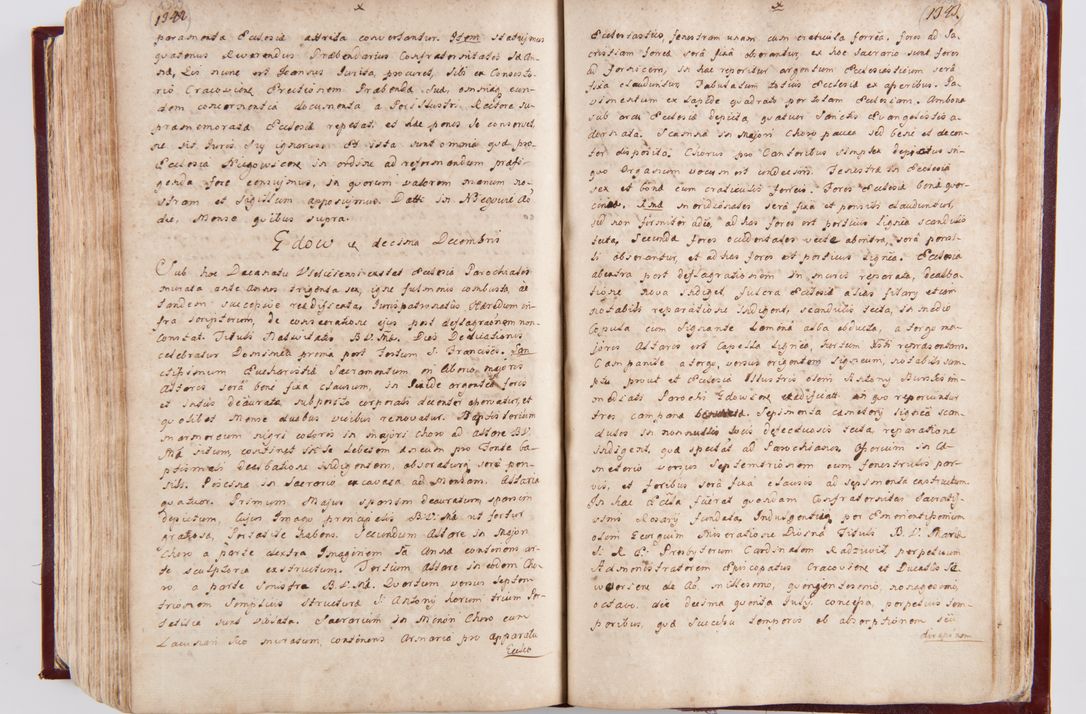 1342
paramenta Ecclesiæ attrita conversantur. Item statuimus
quatenus Reverendus Præbendarius Confraternitatis S. An-
næ, qui nunc est Joannes Jurita, procuret, sibi ex Consisto-
rio Cracoviensi Erectionem Præbendæ suæ, omniaq eun-
dem concernentia documenta a Perillustri Rectore su-
pramemoratæ Ecclesiæ repetat, et hæc penes se conservet,
ne sit Juris sui ignarus. Et ista sunt omnia quæ pro
Ecclesia Niegowicensi in ordine ad reformandum præfi-
genda fore censuimus, in quorum valorem manum no-
stram et sigillum apposuimus. Datt: in Niegowić Aõ
die, Mense quibus supra.
Gdow 10 decima Decembris
Sub hoc Decanatu Vieliciensi extat Ecclesia Parochialis
murata ante annos triginta sex, igne fulminis combusta, ac
tandem successive reædificata, Jurispatronatus Hæredum in-
fra scriptorum, de consecratione ejus post deflagraõnem non
constat. Tituli Nativitatis B.V. Mæ. Dies Dedicationis
celebratur Dominica prima post Festum S. Francisci. San-
ctissimum Eucharistiæ Sacramentum in Altari majori
Altaris sera bene fixa clausum, in Pixide argentea foris
et intus deaurata subposito corporali decenter asservatur, et
quolibet Mense duabus vicibus renovatur. Baptisterium
marmoreum nigri coloris in majori choro ad altare B.V.
Mæ situm, continet in se Lebetem æneum pro Fonte ba-
ptismali dealbatione indigentem, obseratura sera pen-
sili. Piscina in Sacrario excavata ad Mensam. Altaria
quatuor. Primum Majus sparsim deauratum, sparsim
depictum, Cujus Imago principalis B.V. Mæ ut fertur
gratiosa, portatile habens. Secundum Altare in Majori
Choro a parte dextra Imaginem Sæ Annæ continens ar-
te sculptoria exstructum. Tertium Altare in eodem Cho-
ro a parte sinistra B.V. Mæ. Quartum versus Septen-
trionem simplicis structuræ S. Antonij horum trium Por-
tatilia sunt ablata. Sacrarium in Minori Choro cum
Lacunari suo muratum, continens Armaria pro apparatu
Eccles
1343
Ecclesiastico, fenestram unam cum craticula ferrea, fores ad Sa-
cristiam ferea sera fixa obserantur, ex hoc Sacrario sunt fores
ad fornicem, in hac reponitur argentum Ecclesiasticum sera
fixa clauduntur, Tabulatum totius Ecclesiæ ex asseribus. Pa-
vimentum ex lapide quadrato per totam Ecclesiam. Ambona
sub arcu Ecclesiæ depicta, quatuor Sanctis Evangelistis a-
dornata. Scamna in Majori Choro pauca sed bene et decen-
ter disposita. Chorus pro Cantoribus simplex depictus in
quo Organum vocum est condecens. Fenestræ in Ecclesia
sex et bonæ cum craticulis ferreis. Fores Ecclesiæ bonæ quer-
cineæ. Una meridionales sera fixa et pensili clauduntur,
sed non firmiter adeo, ad has fores est porticus lignea scandulis
tecta, Secunda fores occidentales vecte ab intra, sera pensi-
li obserantur, et ad has fores est porticus lignea. Ecclesia
ab extra post deflagrationem in muris reparata, dealba-
tione nova indiget, fulcra Ecclesiæ alias filary etiam
notabili reparatione indigent, scandulis tecta, in medio
Copula cum signante Lamina alba obducta, a tergo ma-
joris Altaris est Capella lignea, Sertum Xsti repræsentans.
Campanile a tergo, versus orientem ligneum, notabili sum-
ptu prout et Ecclesia Illustris olim Antony Buński im-
mediati Parochi Gdoviensis exædificatum in quo reperiuntur
tres campanæ. Sepimenta cæmetery lignea scan-
dulis in nonnullis locis defectuosis tecta, reparatione
indigent, quæ spectat ad Parochianos, Ossorium in Cæ-
meterio versus Septemtrionem cum fenestrulis par-
vis, et foribus sera fixa clausis ad sepimenta exstructum.
In hac Ecclia fuerat quondam Confraternitas Sacratis-
simi Rosarij fundata, Indulgentiæ per Eminentissimum
olim Georgium Miseratione Divina Tituli B.V. Mariæ
S. R. Eæ. Presbyterum Cardinalem Radzivił, perpetuum
Administratorem Episcopatus Cracoviensis et Ducatus Se-
veriensis de Aõ millesimo, quingentesimo, nonagesimo,
octavo. die decima quinta July, concessa, perpetuis tem-
poribus, quæ successu temporis ob absorptionem seu
direptionem